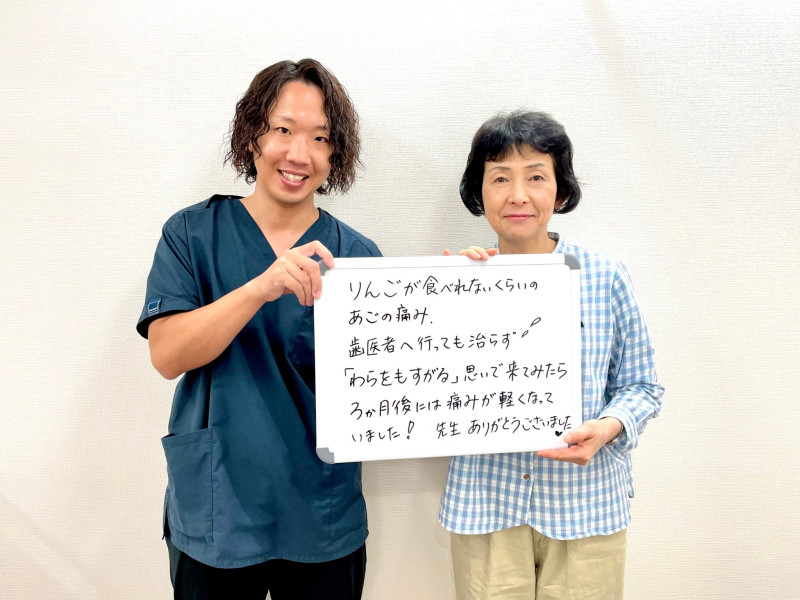 りんごが食べれないくらいの
あごの痛み.
歯医者へ行っても治らず
「わらをもすがる」思いで来てみたら
3か月後には痛みが軽くなって
いました! 先生 ありがとうございました